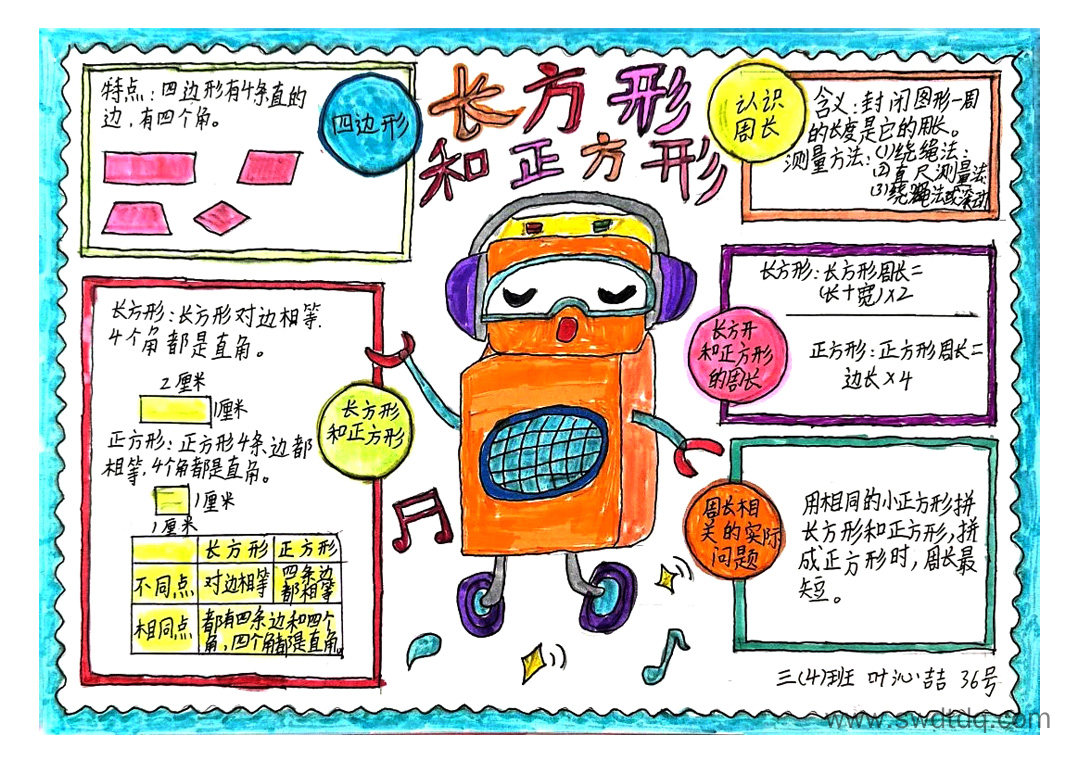 长方形
和正方形
四边形
特点：四边形有4条直的
边，有四个角。
长方形
和正方形
长方形：长方形对边相等.
4个角都是直角。
2厘米
1厘米
正方形：正方形4条边都
相等.4个角都是直角。
1厘米
1厘米
长方形 正方形
不同点 对边相等 四条边
都相等
相同点 都有四条边和四个
角，四个角都是直角。
认识
周长
含义：封闭图形一周
的长度是它的周长。
测量方法：(1)绕绳法；
(2)直尺测量法
(3)绕绳法或滚动
长方开
和正方形
的周长
长方形：长方形周长=
(长+宽)×2
正方形：正方形周长=
边长×4
周长相
关的实际
问题
用相同的小正方形拼
长方形和正方形，拼
成正方形时，周长最
短。
三(4)班 叶沁喆 36号
www.swdtdq.com